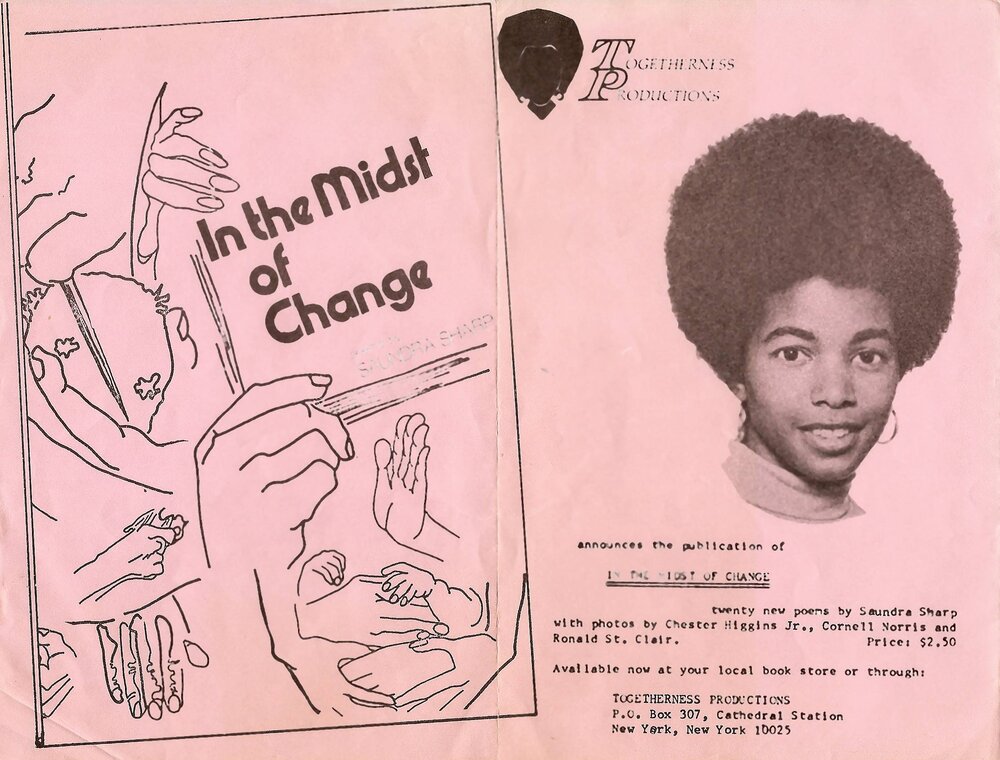 In the Midst
of
Change
SAUNDRA SHARP
TOGETHERNESS
PRODUCTIONS
announces the publication of
IN THE MIDST OF CHANGE
twenty new poems by Saundra Sharp
with photos by Chester Higgins Jr., Cornell Norris and
Ronald St. Clair. Price: $2.50
Available now at your local book store or through:
TOGETHERNESS PRODUCTIONS
P.O. Box 307, Cathedral Station
New York, New York 10025